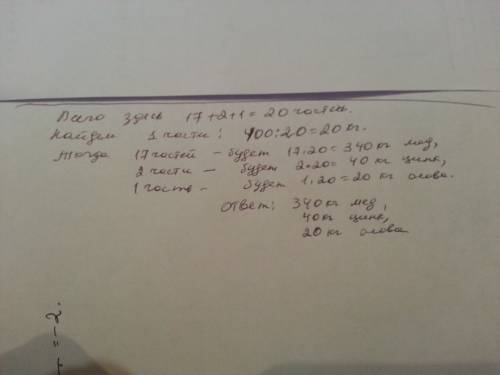 Всего здесь 17+2+1=20 частей.
Найдем 1 части: 400:20=20 кг.
Тогда 17 частей - будет 17·20=340 кг мед,
2 части - будет 2·20=40 кг цинк,
1 часть - будет 1·20=20 кг олова.
Ответ: 340 кг мед,
40 кг цинк,
20 кг олова
=-2.